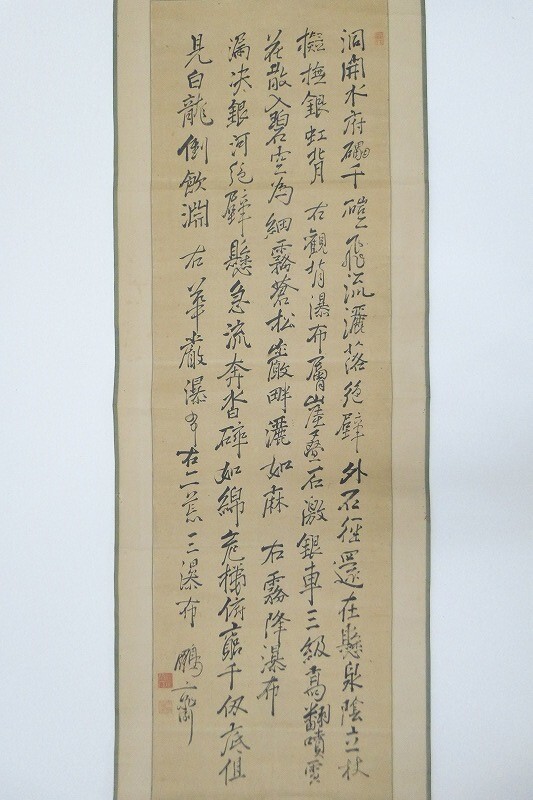 洞開水府千磴飛流灑落絶壁外石徑還在懸泉陰立杖
撫銀虹背 右觀背瀑布層崖疊石激銀車三級高翻噴雪
花散入碧空為細霧蒼松巖畔灑如麻 右霧降瀑布
漏决銀河絶壁懸急流奔沓碎如綿危梯俯窮千仭底但
見白龍倒飲淵 右華嚴瀑布 右二荒三瀑布 鵬斎